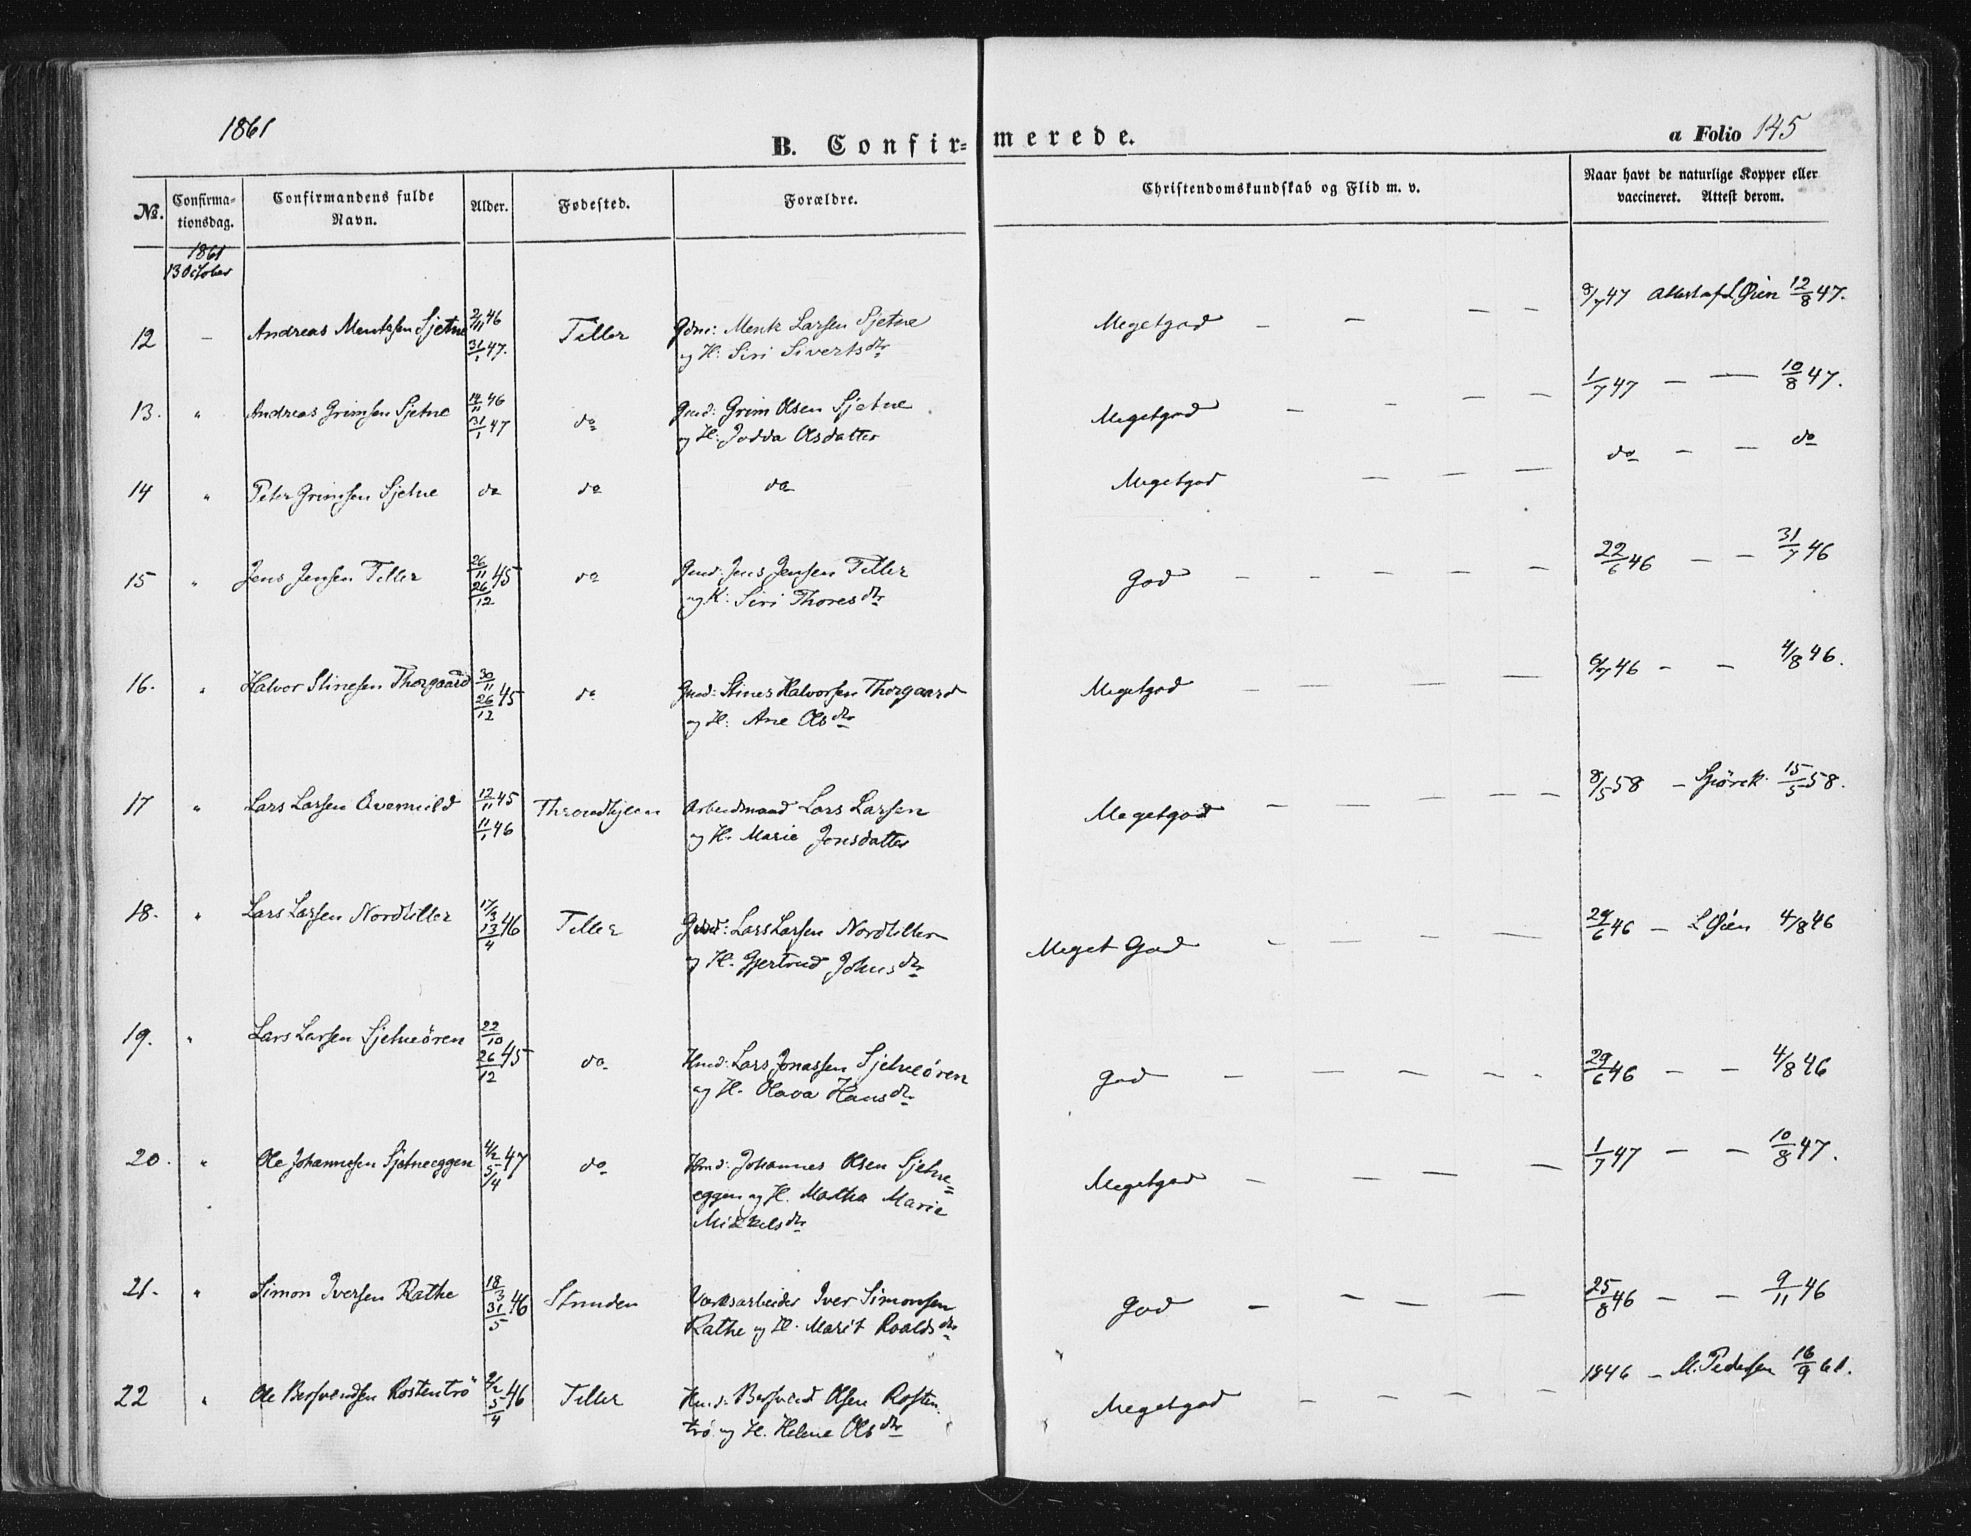 1861
B. Confir=merede.
a Folio 145
No.
Confirma=
tionsdag.
Confirmandens fulde
Navn.
Alder.
Fødested.
Forældre.
Christendomskundskab og Flid m. v.
Naar havt de naturlige Kopper eller
vaccineret. Attest derom.
1861
13 October
12 – Andreas Mentzsen Sjetne 2/11 46 31/1 47. Tiller Gdm: Mentz Larsen Sjetne
og H: Siri Sivertsdtr
Megetgod – – – – 8/7 47 Attest af L Øien 12/8 47.
13. " Andreas Grimsen Sjetne 14/11 46 31/1 47 do Gmd: Grim Olsen Sjetne
og H: Jodda Olsdatter
Megetgod – – – – 1/7 47 – – 10/8 47.
14 " Peter Grimsen Sjetne do do do Megetgod – – – do – – do
15 " Jens Jensen Tiller 26/11 45 26/12 do Gmd: Jens Jensen Tiller
og H: Siri Thoresdtr
God – – – – – – 22/6 46 – – 31/7 46
16. " Halvor Stinesen Thorgaard 30/11 45 26/12 do Gmd: Stines Halvorsen Thorgaard
og H: Ane Olsdtr
Megetgod – – – – – 6/7 46 – – 4/8 46.
17 " Lars Larsen Overnild 12/11 45 11/1 46 Throndhjem Arbeidsmand Lars Larsen
og H. Marie Jensdatter
Megetgod – – – – – 8/5 58 – Spørck 15/5 58.
18. " Lars Larsen Nordtiller 17/3 46 13/4 Tiller Gmd: Lars Larsen Nordtiller
og H. Gjertrud Johnsdtr
Meget God – – – – – 29/6 46 – L Øien 4/8 46
19. " Lars Larsen Sjetneören 22/10 45 26/12 do Hmd: Lars Jonassen Sjetneören
og H. Olava Hansdtr
God – – – – – – 29/6 46 – – 4/8 46
20. " Ole Johannesen Sjetneeggen 4/2 47 5/4 do Hmd: Johannes Olsen Sjetne=
eggen og H. Martha Marie
Mikkelsdtr
Megetgod – – – – 1/7 47 – – 10/8 47.
21. " Simon Iversen Rathe 18/3 46 31/5 Strinden Værksarbeider Iver Simonsen
Rathe og H. Marit Roaldsdtr
God – – – – 25/8 46 – – 9/11 46
22 " Ole Bersvendsen Rostentrö 46 5/4 Tiller Hmd: Bersvend Olsen Rosten
trö og H. Helene Olsdtr
Megetgod – – – – – 1846 – M. Pedersen 16/9 61.